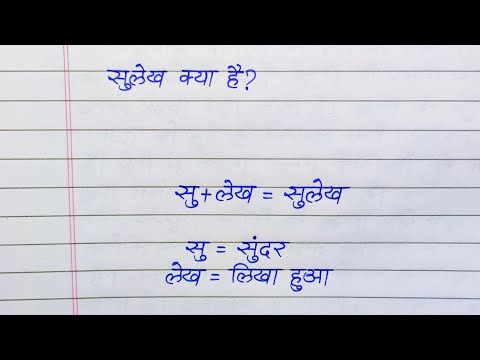 सुलेख क्या है?
सु+लेख = सुलेख
सु = सुंदर
लेख = लिखा हुआ